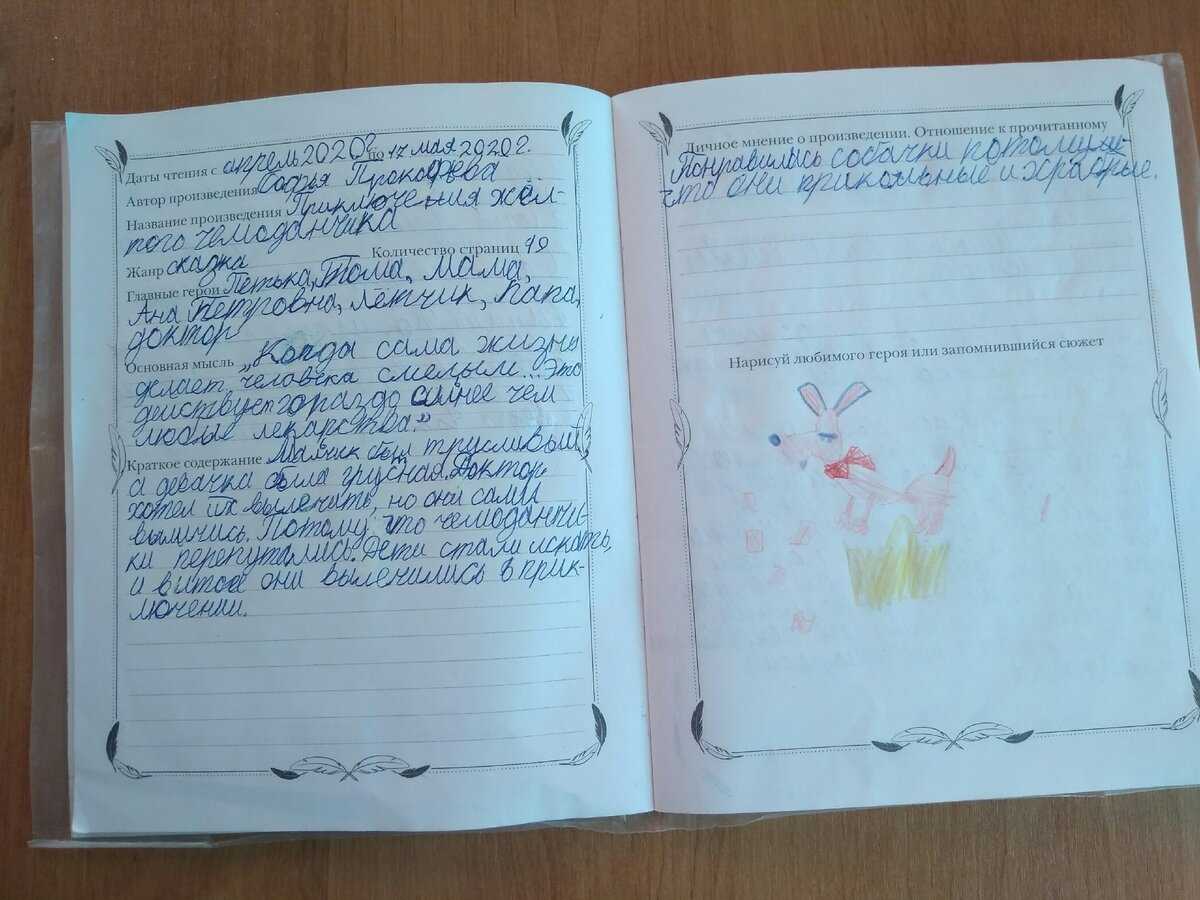 Даты чтения с апрель 2020г. по 17 мая 2020г.
Автор произведения Софья Прокофьева
Название произведения Приключения жёл-
того чемоданчика
Жанр сказка Количество страниц 79
Главные герои Петька, Тома, Мама,
Ана Петровна, лётчик, папа,
доктор
Основная мысль „Когда сама жизнь
делает человека смелым... Это
действует гораздо силнее чем
любые лекарства."
Краткое содержание Малчик был трусливый,
а девачка была грусная. Доктор
хотел их вылечить, но они сами
выличись. Потому что чемоданчи-
ки перепутались. Дети стали искать,
и в итоге они вылечились в прик-
лючении.
Личное мнение о произведении. Отношение к прочитанному
Понравились собачки потому
что они прикольные и храбрые.
Нарисуй любимого героя или запомнившийся сюжет